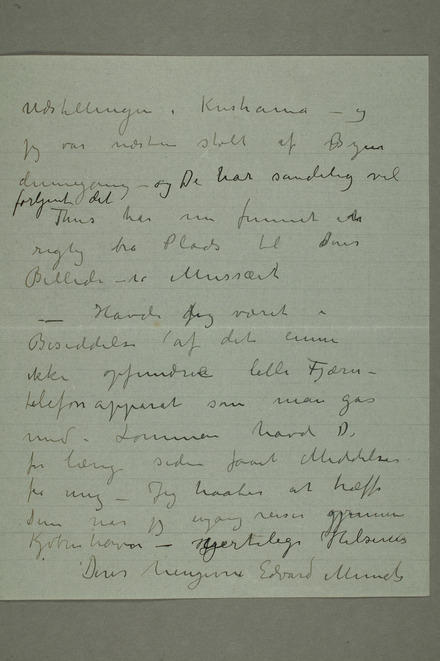 Udstillingen i Kristiania – og
jeg var næsten stolt af Byen
– og De har sandelig vel
fortjent det
Thiis har nu funnet en
rigtig bra Plads til Deres
Billede – i Museet
– Havde jeg været i
Besiddelse af det ennu
ikke opfundne lille Fjern-
telefonapparat som man gas
med i Lommen havde De
for længe siden faaet Meddelelse
fra mig – Jeg haaber at træffe
Dem når jeg engang reiser gjennem
Kjøbenhavn – Hjertelige Hilsener
Deres hengivne Edvard Munch